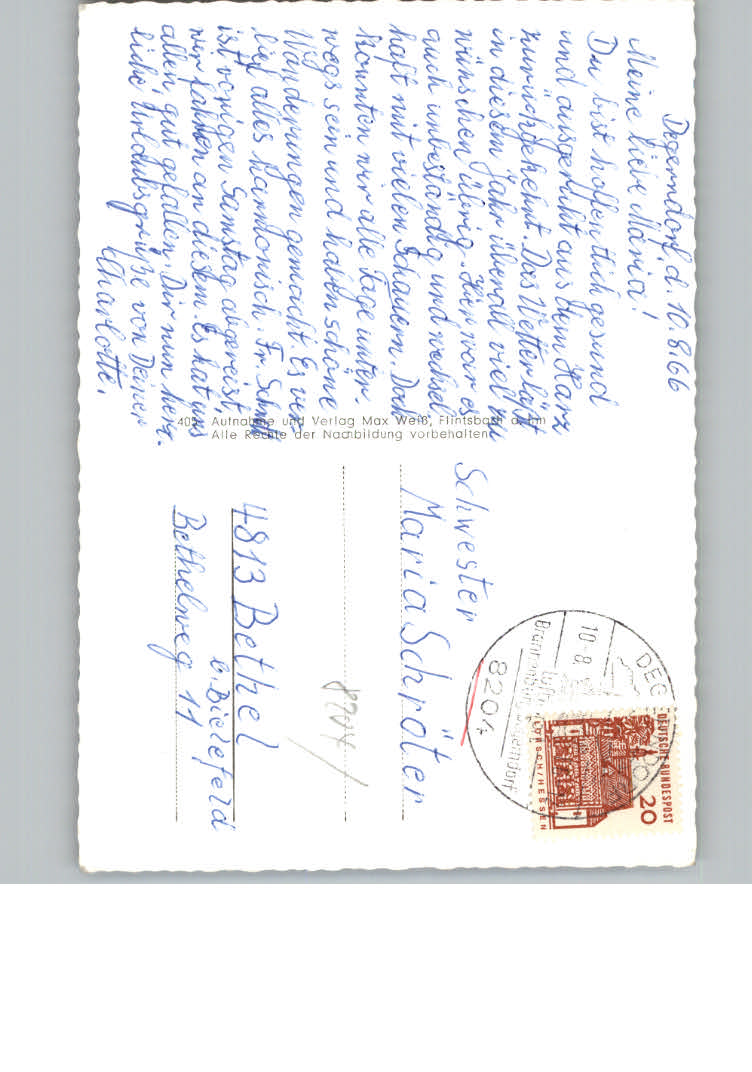 Degerndorf, d. 10.8.66
Meine liebe Maria!
Du bist hoffentlich gesund
und ausgeruht aus dem Harz
zurückgekehrt. Das Wetter läßt
in diesem Jahr überall viel zu
wünschen übrig. Hier war es
auch unbeständig und wechsel-
haft mit vielen Schauern. Doch
konnten wir alle Tage unter-
wegs sein und haben schöne
Wanderungen gemacht. Es ver-
lief alles harmonisch. Fr.
ist vorigen Samstag abgereist,
wir fahren an diesem. Es hat uns
allen gut gefallen. Dir nun herz-
liche Urlaubsgrüße von Deiner
Charlotte.
405 Aufnahme und Verlag Max Weiß, Flintsbach a. Inn
Alle Rechte der Nachbildung vorbehalten
Schwester
Maria Schröter
4813 Bethel
b. Bielefeld
Bethelweg 11
8204
DEG
10.-8.
Luft
Brannenburg-Degerndorf
8204
DEUTSCHE BUNDESPOST
20
LORSCH/HESSEN